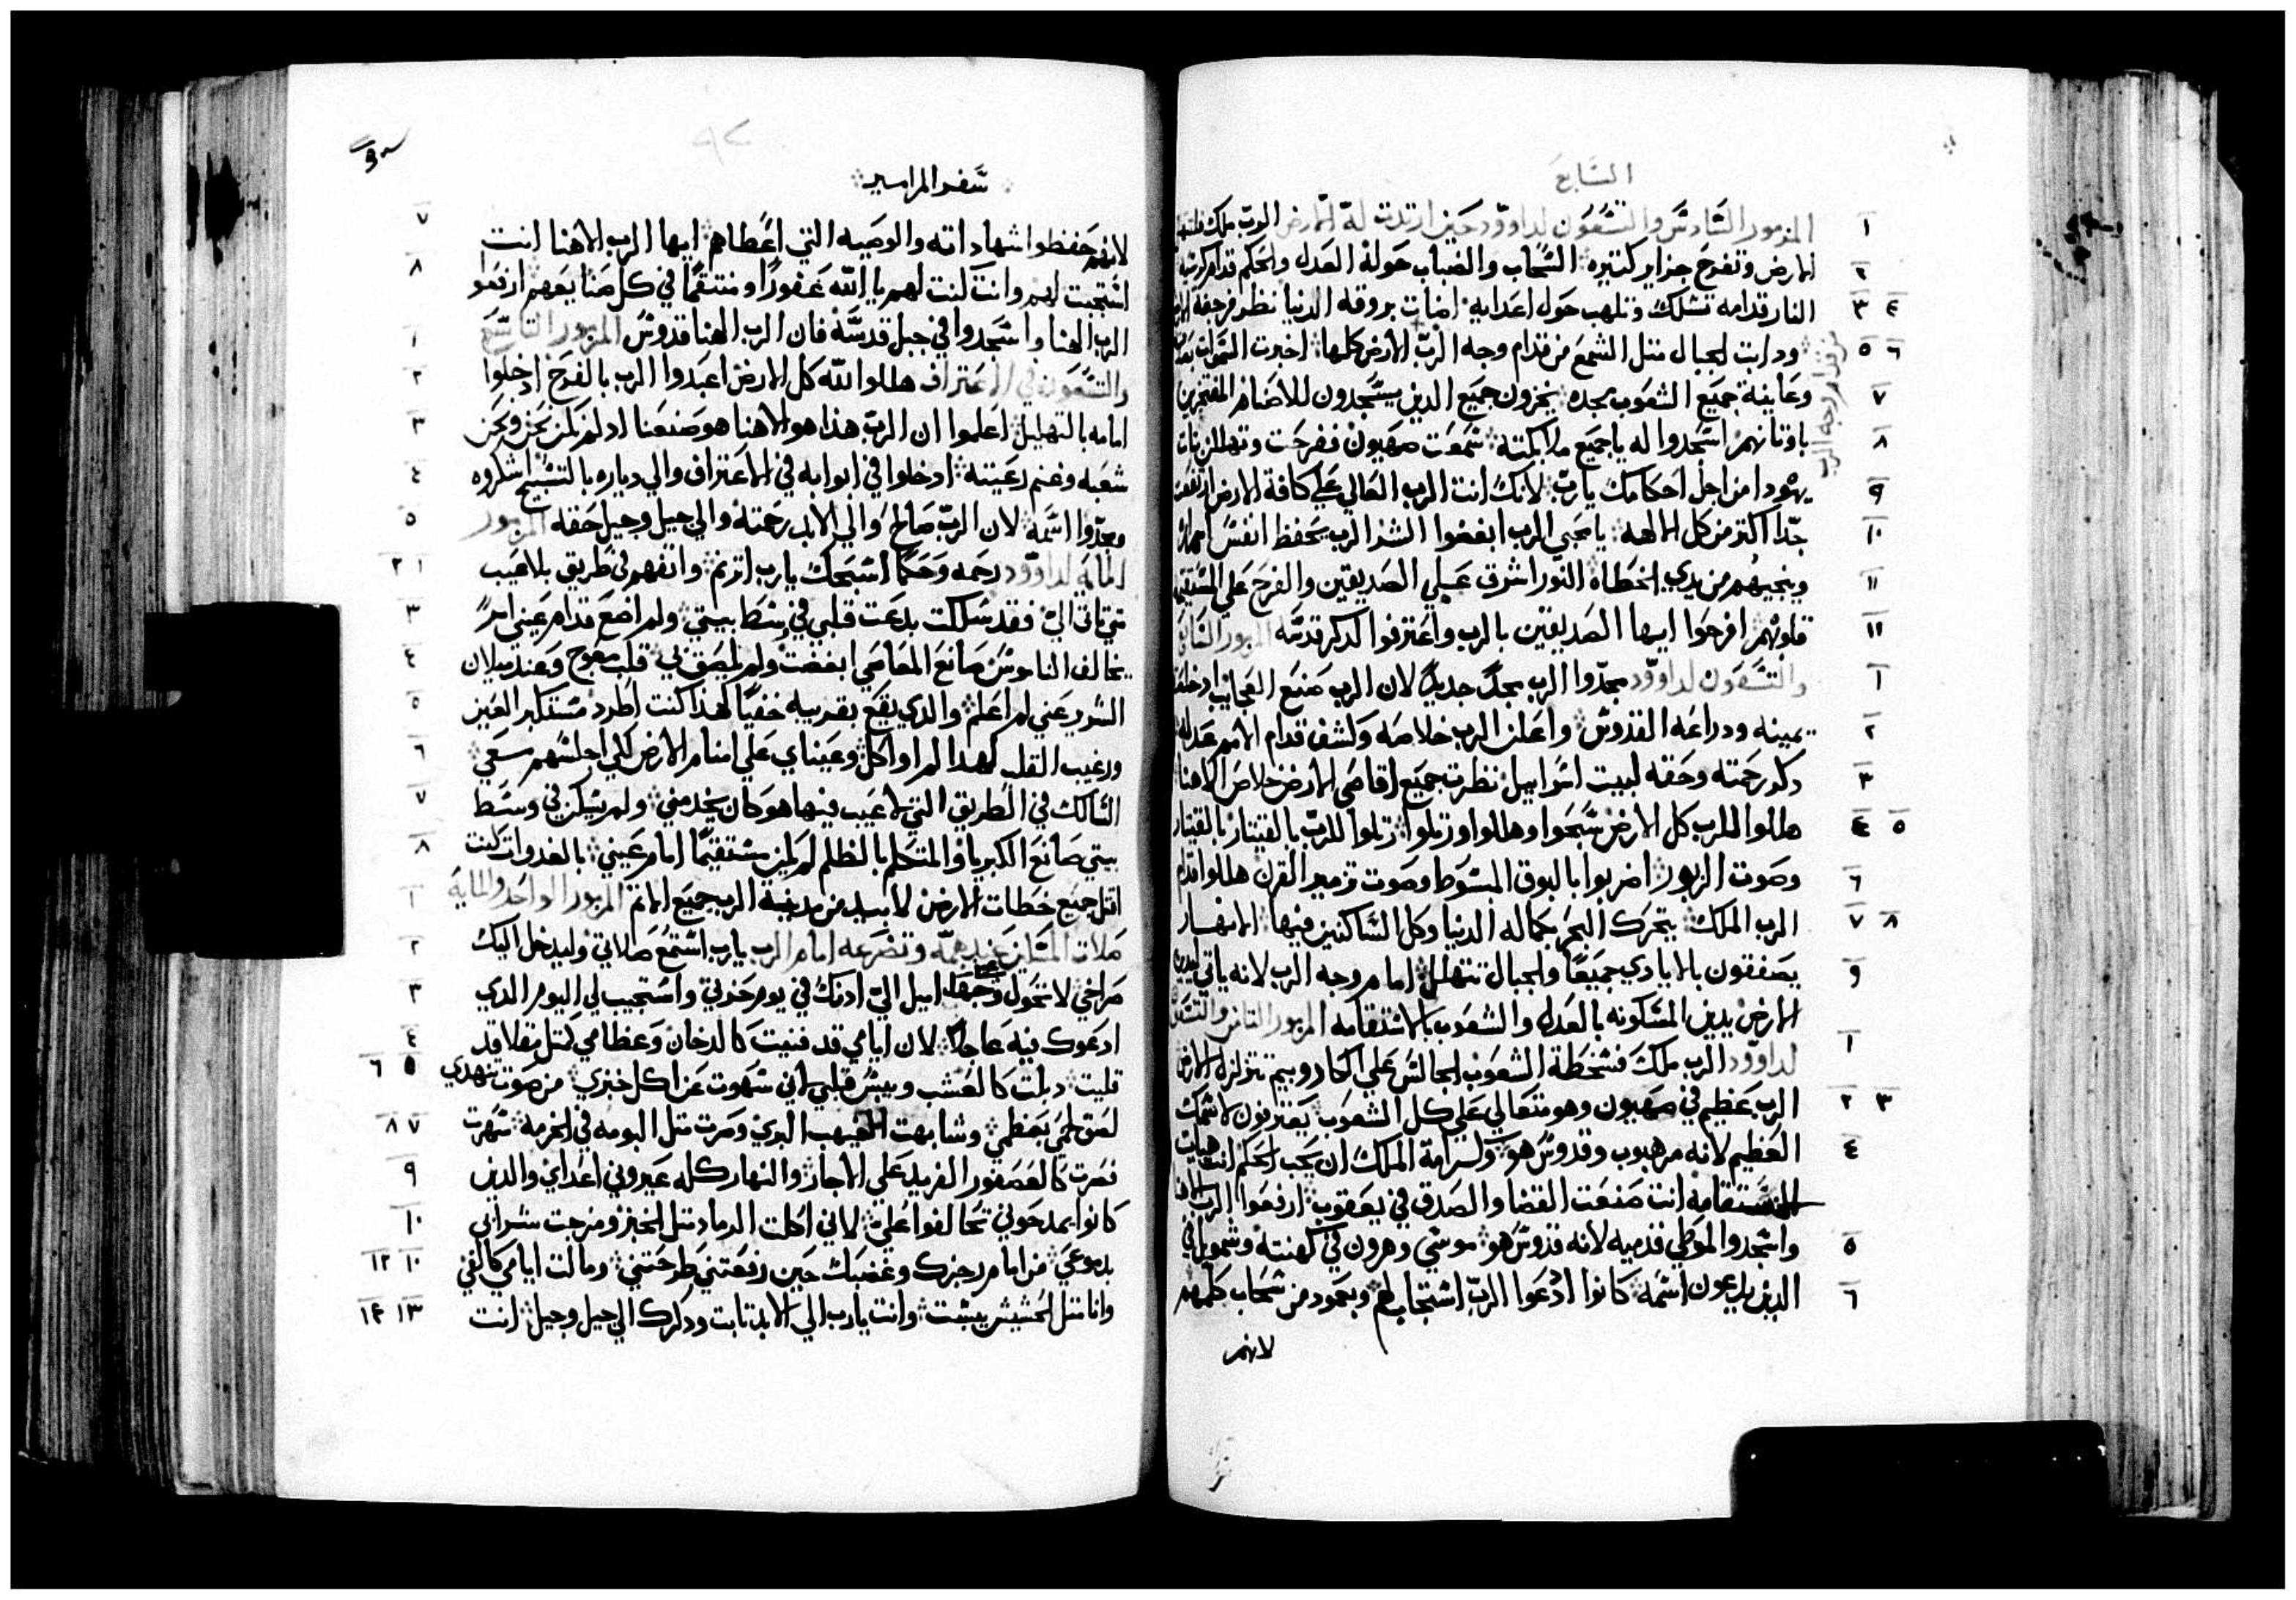 السابع
المزمور السادس والتسعون لداوود حين ارتدت له الارض الرب ملك فلتتهلل
الارض وتفرح جزاير كثيره السحاب والضباب حوله العدل والحكم قدام كرسيه
النار قدامه تسلك وتلهب حول اعدايه اضات بروقه الدنيا نظر فرجفه
ودابت الجبال متل الشمع من قدام وجه الرب الارض كلها اخبرت السموات
وعاينة جميع الشعوب مجده يخزون جميع الدين يسجدون للاصنام المفتخرين
باوتانهم اسجدوا له ياجميع ملايكته سمعت صهيون ففرحت وتهللن بنات
يهودا من اجل احكامك يارب لانك انت الرب العالي علي كافة الارض ارتفعت
جدا اكتر من كل الالهه يا محبي الرب ابغضوا الشر الرب يحفظ انفس
وينجيهم من يدي الخطاه النور اشرق علي الصديقين والفرح علي المستقيمه
قلوبهم افرحوا ايها الصديقين بالرب واعترفوا لدكر قدسه المزمور السابع
والتسعون لداوود مجدوا الرب مجدا جديدا لان الرب صنع العجايب
يمينه ودراعه القدوس واعلن الرب خلاصه وكشف قدام الامم عدله
دكر رحمته وحقه لبيت اسراييل نظرت جميع اقاصي الارض خلاص الاهنا
هللوا للرب كل الارض سبحوا وهللوا ورتلوا رتلوا للرب بالقيتار بالقيتار
وصوت الزبور اضربوا بالبوق المسوط وصوت تزمير القرن هللوا قدام
الرب الملك يتحرك البحر بكماله الدنيا وكل الساكنين فيها الانهار
يصفقون بالايادي جميعا والجبال تتهلل امام وجه الرب لانه ياتي ليدين
الارض يدين المسكونه بالعدل والشعوب بالاستقامه المزمور التامن والتسعون
لداوود الرب ملك فسخطة الشعوب الجالس علي الكاروبيم تتزلزل الارض
الرب عظيم في صهيون وهو متعالي علي كل الشعوب يعترفون لاسمك
العظيم لانه مرهوب وقدوس هو وكرامة الملك ان يحب الحكم انت هيات
المستقامه انت صنعت القضا والصدق في يعقوب ارفعوا الرب الاهنا
واسجدوا لموطي قدميه لانه قدوس هو موسي وهرون في كهنته وشمويل في
الدين يدعون اسمه كانوا ادعوا الرب استجاب لهم وبعمود من سحاب كلمهم
لانهم
سفر المزامير
لانهم حفظوا شهاداته والوصيه التي اعطاهم ايها الرب الاهنا انت
استجبت لهم وانت كنت لهم يا الله غفورا ومنتقما في كل صنايعهم ارفعوا
الرب الهنا واسجدوا في جبل قدسه فان الرب الهنا قدوس المزمور التاسع
والتسعون في الاعتراف هللوا لله كل الارض اعبدوا الرب بالفرح ادخلوا
امامه بالتهليل اعلموا ان الرب هذا هو الاهنا هو صنعنا اد لم نكن نحن ونحن
شعبه وغنم رعيته ادخلوا في ابوابه في الاعتراف والي دياره بالتسبيح اشكروه
مجدوا اسمه لان الرب صالح والي الابد رحمته والي جيل وجيل حقه المزمور
المايه لداوود رحمه وحكما اسبحك يارب ارنم واتفهم في طريق بلا عيب
متي تاتي الي فقد سلكت بدعت قلبي في وسط بيتي ولم اضع قدام عيني امرا
يخالف الناموس صانع المعاصي ابغضت ولم يلصق بي قلب معوج وعند ميلان
الشرير عني لم اعلم والدي يقع بقريبه خفيا لهذا كنت اطرد مستكبر العين
ورغيب القلب لهدا لم اواكل وعيناي علي امنا الارض لكي اجلسهم معي
السالك في الطريق التي لا عيب فيها هو كان يخدمني ولم يسكن في وسط
بيتي صانع الكبريا والمتكلم بالظلم لم يكن مستقيما امام عيني بالغدوات كنت
اقتل جميع خطات الارض لابيد من مدينة الرب جميع الاتم المزمور الواحد والمايه
صلات المسكين عند همه وتضرعه امام الرب يارب استمع صلاتي وليدخل اليك
صراخي لا تحول وجهك اميل الي ادنك في يوم حزني واستجيب لي اليوم الدي
ادعوك فيه عاجلا لان ايامي قد فنيت كالدخان وعظامي متل مقلا قد
قليت دبلت كالعشب ويبس قلبي لاني سهوت عن اكل خبزي من صوت تنهدي
لصق لحمي بعظمي وشابهت البري وصرت متل البومه في الخربه سهرت
فصرت كالعصفور الفريد علي الاجار والنهار كله عيروني اعداي والدين
كانوا يمدحوني تحالفوا علي لاني اكلت الرماد متل الخبز ومزجت شرابي
بدموعي من امام رجزك وغضبك حين رفعتني طرحتني ومالت ايامي كالفي
وانا متل الحشيش يبست وانت يارب الي الابد تابت ودكرك الي جيل وجيل انت